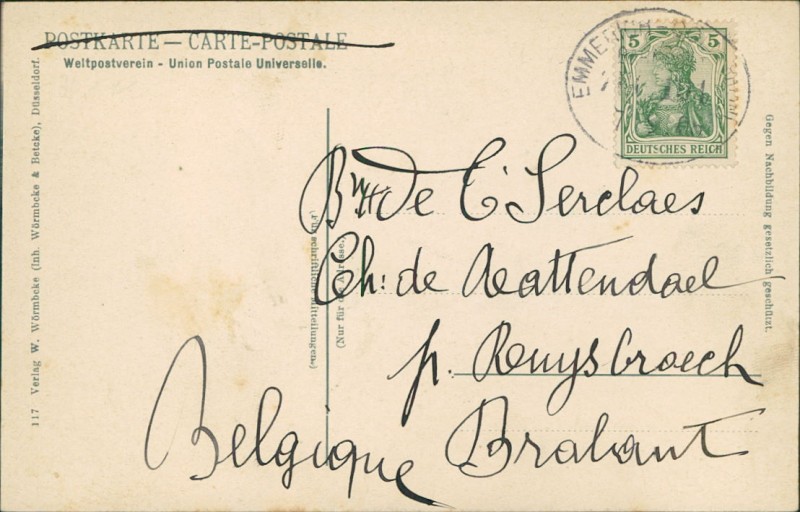 POSTKARTE — CARTE-POSTALE
Weltpostverein - Union Postale Universelle.
5 5
DEUTSCHES REICH
EMMERICH
117 Verlag W. Wörmbcke (Inh. Wörmbcke & Betcke), Düsseldorf.
Gegen Nachbildung gesetzlich geschützt.
(Für schriftliche Mitteilungen)
(Nur für die Adresse.)
de T'Serclaes
Ch: de Wattendael
p. Ruysbroeck
Belgique Brabant